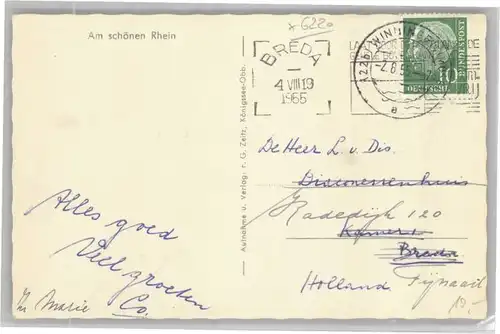 * 6220
Am schönen Rhein
BREDA
4 VIII 19
1955
(22b) WINNINGEN
-2.8.5
a
10
DEUTSCHE BUNDESPOST
Aufnahme u. Verlag: r. G. Zeitz, Königssee-Obb.
De Heer L. v. Dis.
Diaconessenhuis
Kadedijk 120
Kamer 1
Breda
Holland
19.-
Alles goed
Veel groeten
Co.
Marie